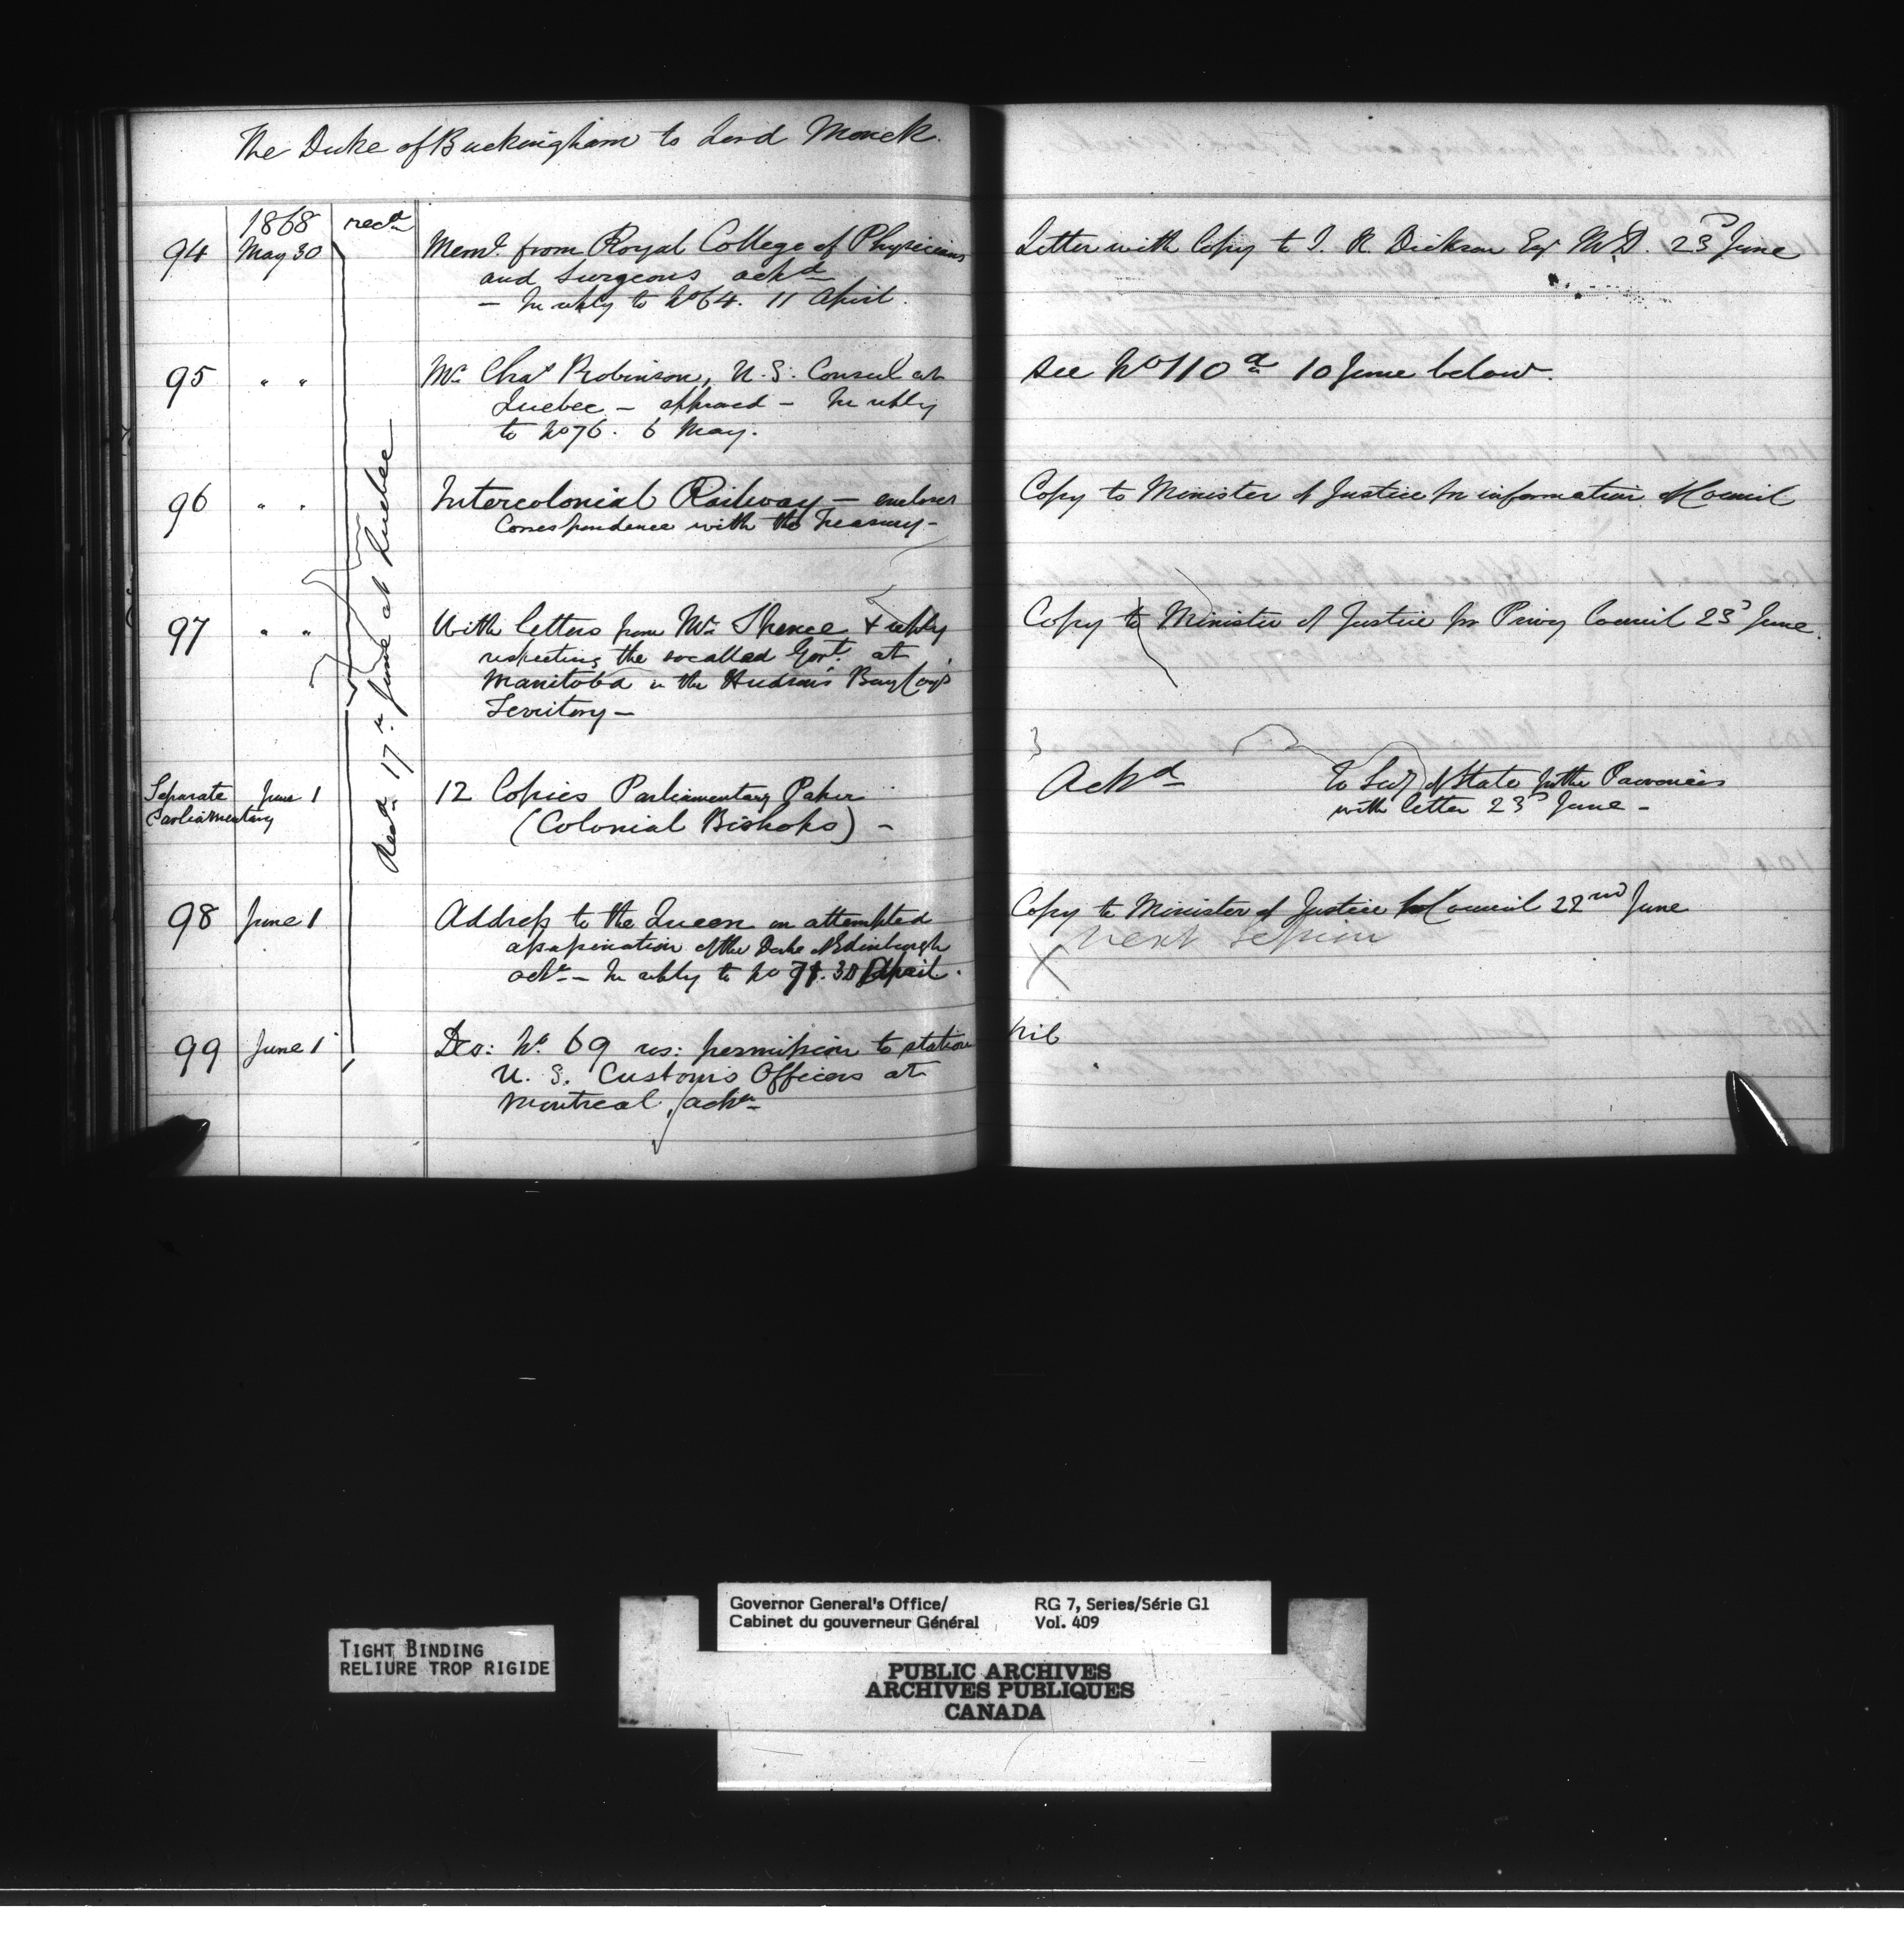 The Duke of Buckingham to Lord Monck.
1868 recd
94 May 30 Meml. from Royal College of Physicians
and Surgeons ackd
— In reply to No 64. 11 April.
Letter with Copy to J. R. Dickson Esq M.D. 23d June
95 " " Mr. Chas Robinson, U.S. Consul at
Quebec — approved — In reply
to No 76. 6 May.
See No 110 a 10 June below.
96 " " Intercolonial Railway — encloses
Correspondence with the Treasury —
Copy to Minister of Justice for information of Council
97 " " With letters from Mr. Spence & reply
respecting the so called Govt. at
Manitoba in the Hudson's Bay Coy's
Territory —
Copy to Minister of Justice for Privy Council 23d June.
Recd. 17th June at Quebec
Separate June 1 12 Copies Parliamentary Paper
Parliamentary (Colonial Bishops) —
Ackd To Secy of State for the Provinces
with letter 23d June —
98 June 1 Address to the Queen on attempted
assassination of the Duke of Edinburgh
ackd — In reply to No 71. 30 April.
Copy to Minister of Justice for Council 22nd June
X next Session
99 June 1 Des: No. 69 res: permission to station
U. S. Customs Officers at
Montreal, ackd
Nil
TIGHT BINDING
RELIURE TROP RIGIDE
Governor General's Office/
Cabinet du gouverneur Général
RG 7, Series/Série G1
Vol. 409
PUBLIC ARCHIVES
ARCHIVES PUBLIQUES
CANADA